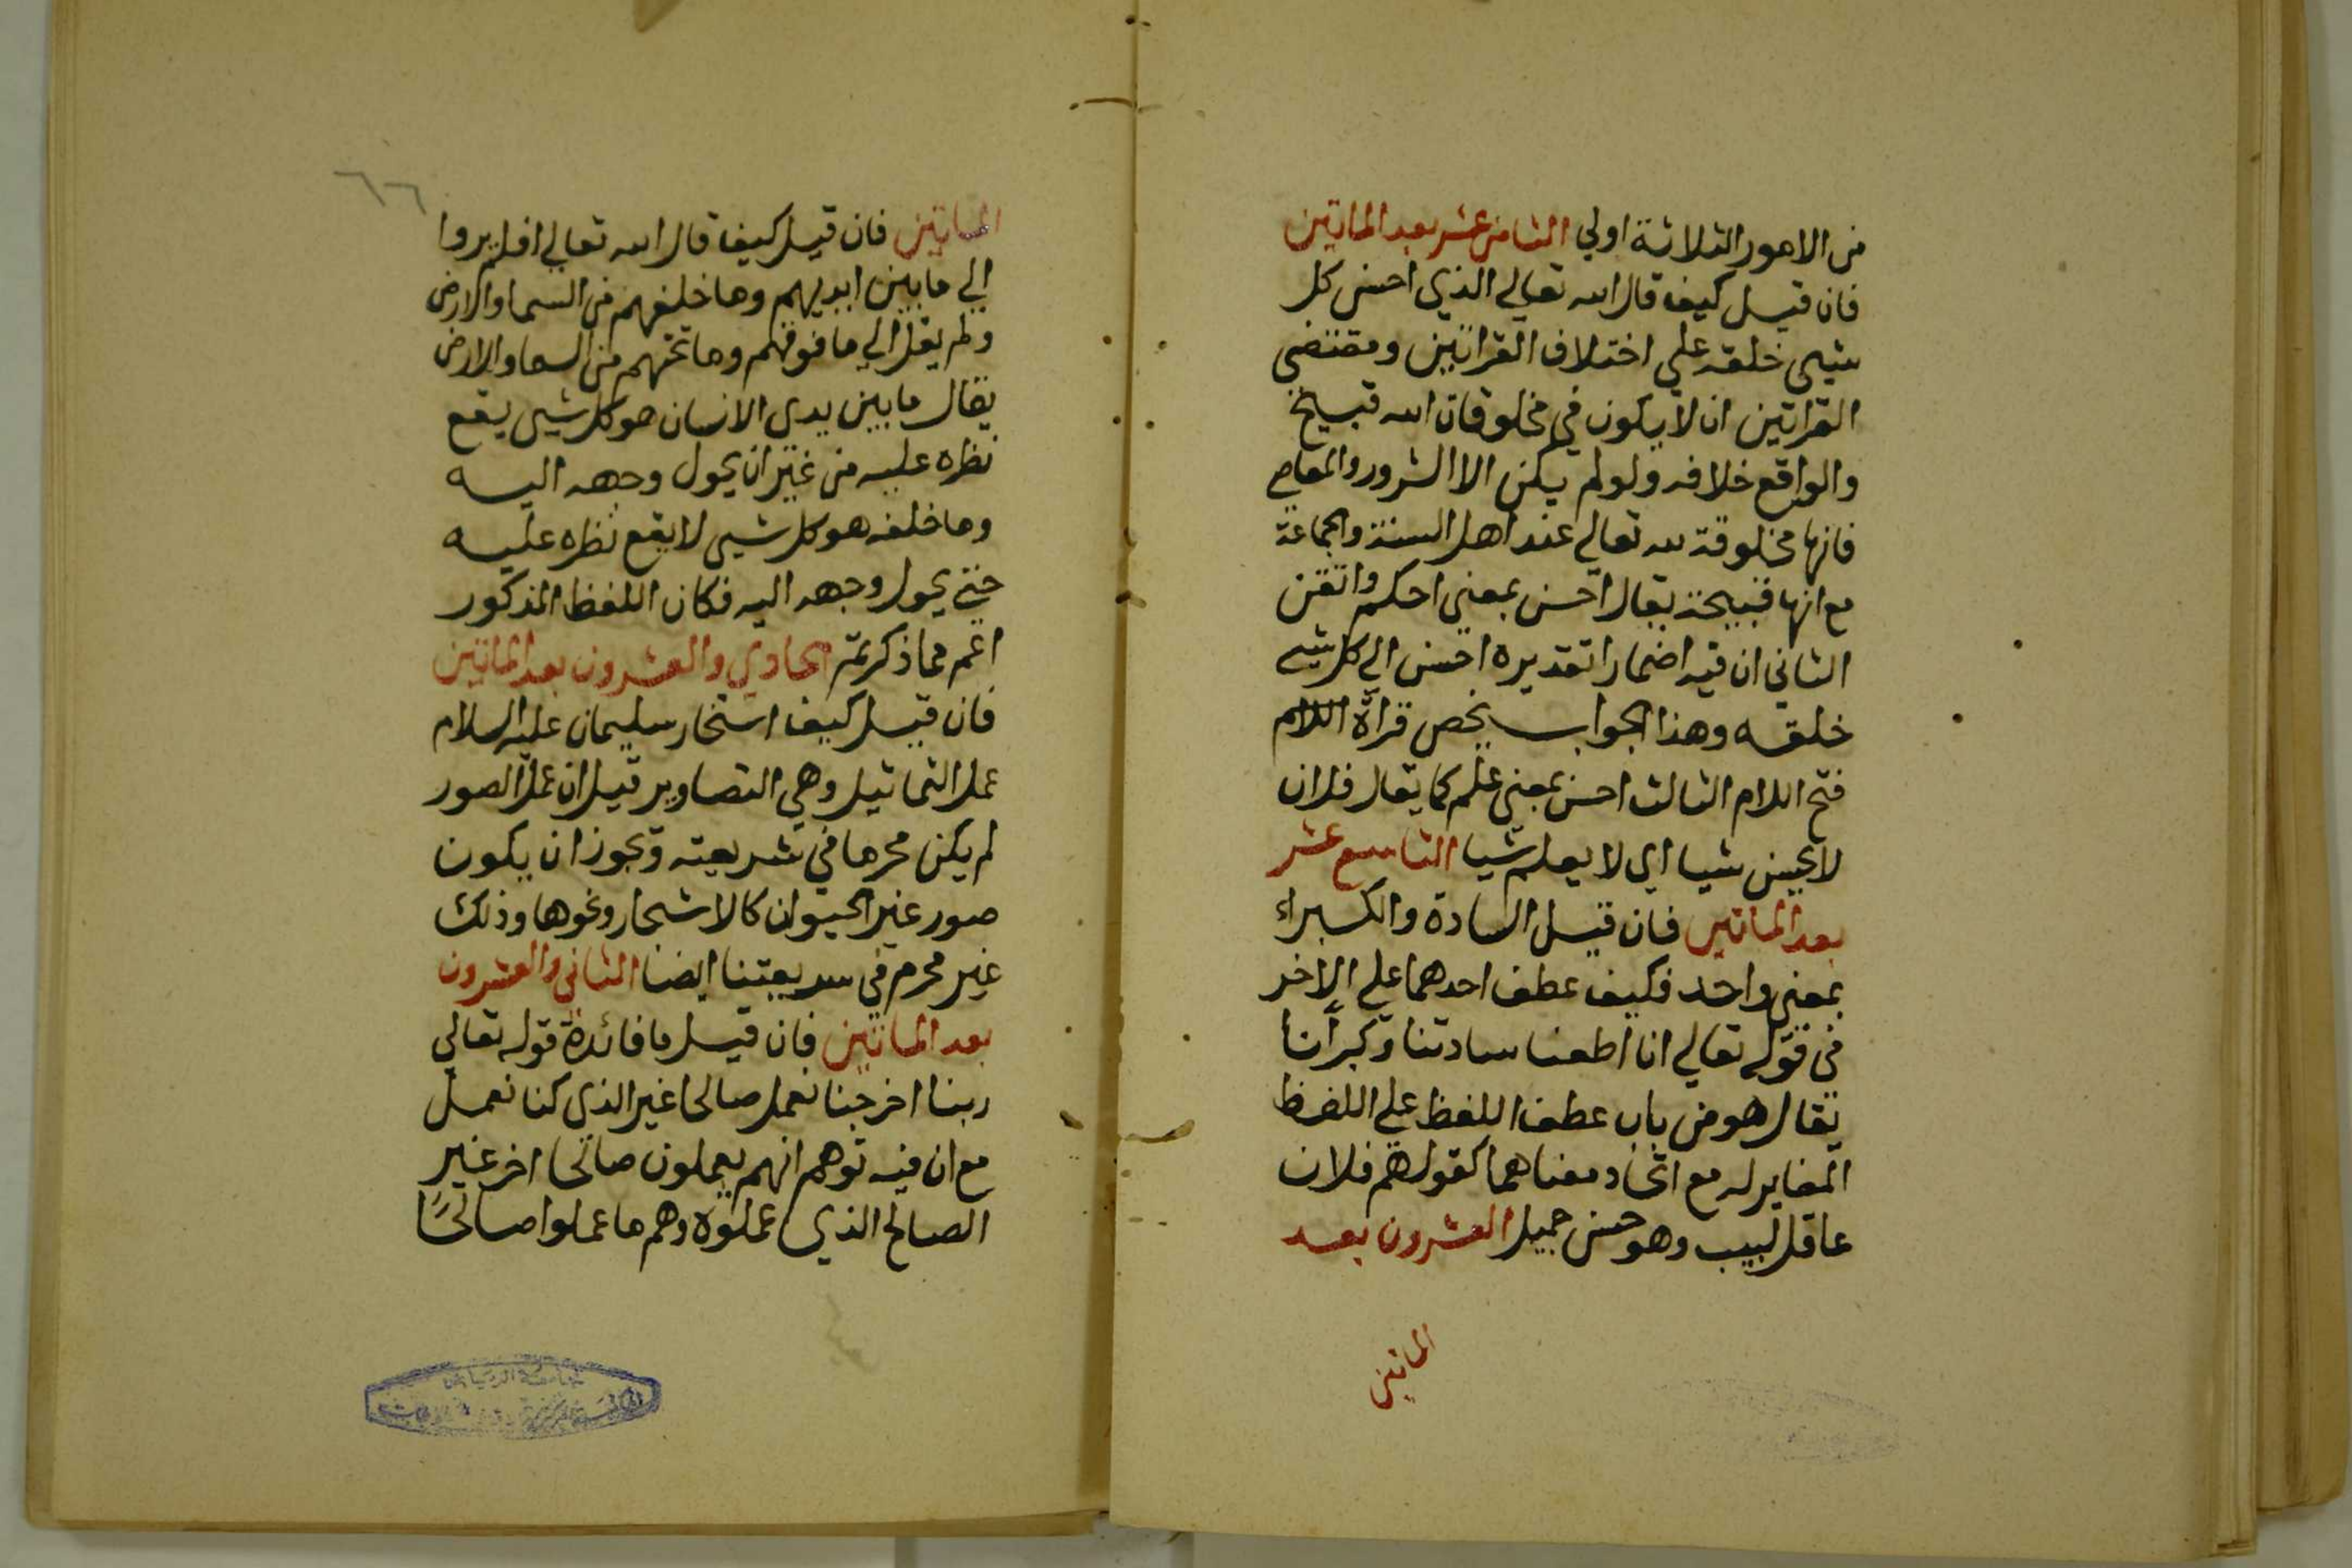 من الامور الثلاثة اولي الثامن عشر بعد الماتين
فان قيل كيف قال الله تعالي الذي احسن كل
شيي خلقه علي اختلاف القراتين ومقتضي
القراتين ان لا يكون في مخلوقات الله قبيح
والواقع خلافه ولو لم يكن الا الشرور والمعاصي
فانها مخلوقة لله تعالي عند اهل السنة والجماعة
مع انها قبيحة يقال احسن بمعني احكم واتقن
الثاني ان فيه اضمارا تقديره احسن الي كل شيي
خلقه وهذا الجواب يخص قرآة اللام
فتح اللام الثالث احسن بمعني علم كما يقال فلان
لا يحسن شيا اي لا يعلم شيا التاسع عشر
بعد الماتين فان قيل السادة والكبراء
بمعني واحد فكيف عطف احدهما علي الاخر
في قوله تعالي انا اطعنا سادتنا وكبرآنا
يقال هو من باب عطف اللفظ علي اللفظ
المغاير له مع اتحاد معناهما كقولهم فلان
عاقل لبيب وهو حسن جميل العشرون بعد
الماتين
٦٦
الماتين فان قيل كيف قال الله تعالي افلم يروا
الي ما بين ايديهم وما خلفهم من السما والارض
ولم يقل الي ما فوقهم وما تحتهم من السما والارض
يقال ما بين يدي الانسان هو كل شيي يقع
نظره عليه من غير ان يحول وجهه اليه
وما خلفه هو كل شيي لا يقع نظره عليه
حتي يحول وجهه اليه فكان اللفظ المذكور
اعم مما ذكرتم الحادي والعشرون بعد الماتين
فان قيل كيف استخار سليمان عليه السلام
عمل التماثيل وهي التصاوير قيل ان عمل الصور
لم يكن محرما في شريعته ويجوز ان يكون
صور غير الحيوان كالاشجار ونحوها وذلك
غير محرم في شريعتنا ايضا الثاني والعشرون
بعد الماتين فان قيل ما فائدة قوله تعالي
ربنا اخرجنا نعمل صالحا غير الذي كنا نعمل
مع ان فيه توهم انهم يعملون صالحا اخر غير
الصالح الذي عملوه وهم ما عملوا صالحًا